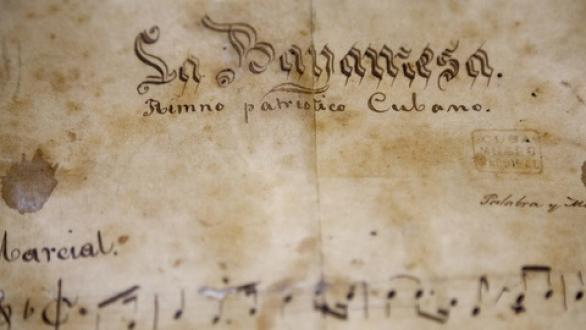 La Bayamesa.
Himno patriotico Cubano.
CUBA
MUSEO
Palabra y
Marcial.